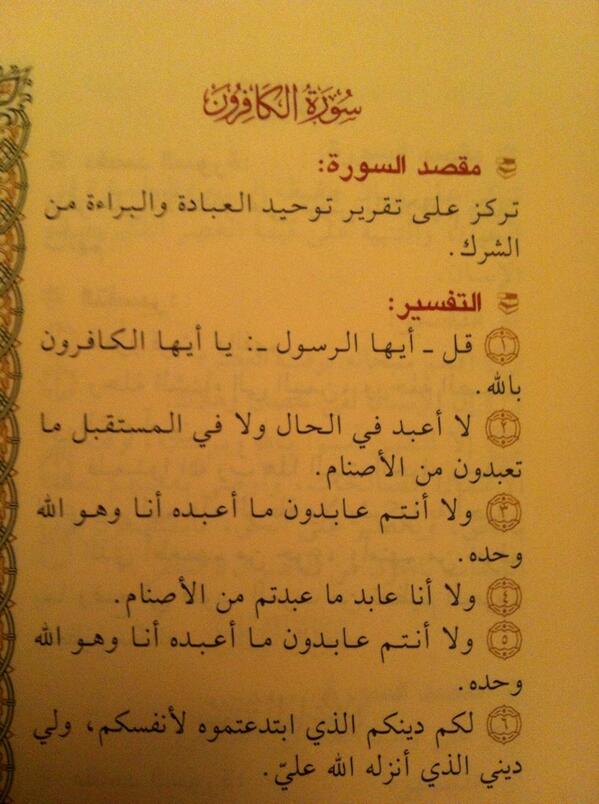 سورة الكافرون
مقصد السورة:
تركز على تقرير توحيد العبادة والبراءة من
الشرك.
التفسير:
١ قل ـ أيها الرسول ـ: يا أيها الكافرون
بالله.
٢ لا أعبد في الحال ولا في المستقبل ما
تعبدون من الأصنام.
٣ ولا أنتم عابدون ما أعبده أنا وهو الله
وحده.
٤ ولا أنا عابد ما عبدتم من الأصنام.
٥ ولا أنتم عابدون ما أعبده أنا وهو الله
وحده.
٦ لكم دينكم الذي ابتدعتموه لأنفسكم، ولي
ديني الذي أنزله الله عليّ.